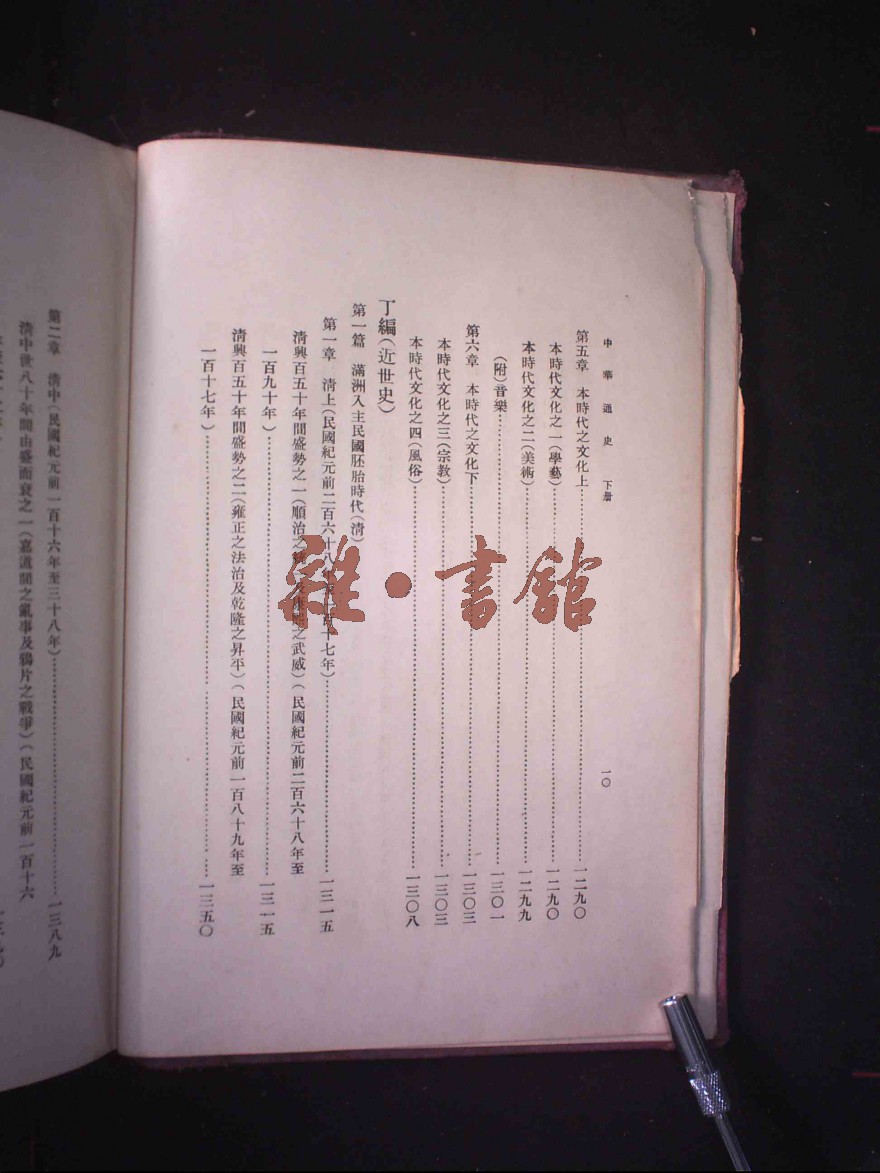 中華通史 下册
一〇
第五章 本時代之文化上……一二九〇
本時代文化之一(學藝)……一二九〇
本時代文化之二(美術)……一二九九
(附)音樂……一三〇一
第六章 本時代之文化下……一三〇三
本時代文化之三(宗教)……一三〇三
本時代文化之四(風俗)……一三〇八
丁編(近世史)
第一篇 滿洲入主民國胚胎時代(清)
第一章 清上(民國紀元前二百六十八年至一百十七年)……一三一五
清興百五十年間盛勢之一(順治之 之武威)(民國紀元前二百六十八年至
一百九十年)……一三一五
清興百五十年間盛勢之二(雍正之法治及乾隆之昇平)(民國紀元前一百八十九年至
一百十七年)……一三五〇
第二章 清中(民國紀元前一百十六年至三十八年)……一三八九
清中世八十年間由盛而衰之一(嘉道間之亂事及鴉片之戰爭)(民國紀元前一百十六
雜·書館